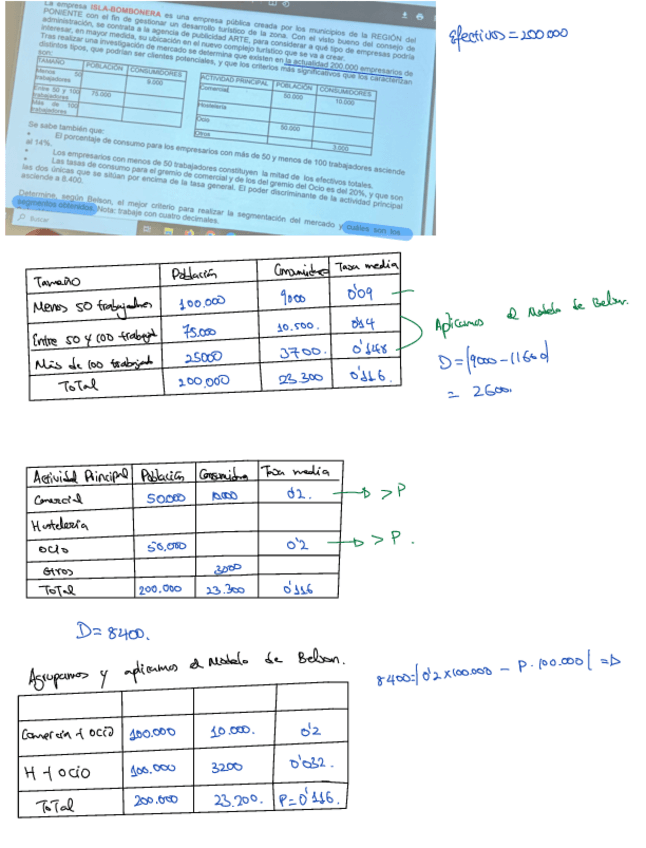 La empresa ISLA-BOMBONERA es una empresa pública creada por los municipios de la REGIÓN del
PONIENTE con el fin de gestionar un desarrollo turístico de la zona. Con el visto bueno del consejo de
administración, se contrata a la agencia de publicidad ARTE, para considerar a qué tipo de empresas podría
interesar, en mayor medida, su ubicación en el nuevo complejo turístico que se va a crear.
Tras realizar una investigación de mercado se determina que existen en la actualidad 200.000 empresarios de
distintos tipos, que podrían ser clientes potenciales, y que los criterios más significativos que los caracterizan
son:
TAMAÑO POBLACIÓN CONSUMIDORES
Menos 50 trabajadores 9.000
Entre 50 y 100 trabajadores 75.000
Más de 100 trabajadores
ACTIVIDAD PRINCIPAL POBLACIÓN CONSUMIDORES
Comercial 50.000 10.000
Hostelería
Ocio 50.000
Otros 3.000
Se sabe también que:
El porcentaje de consumo para los empresarios con más de 50 y menos de 100 trabajadores asciende
al 14%.
Los empresarios con menos de 50 trabajadores constituyen la mitad de los efectivos totales.
Las tasas de consumo para el gremio de comercial y de los del gremio del Ocio es del 20%, y que son
las dos únicas que se sitúan por encima de la tasa general. El poder discriminante de la actividad principal
asciende a 8.400.
Determine, según Belson, el mejor criterio para realizar la segmentación del mercado y cuáles son los
segmentos obtenidos. Nota: trabaje con cuatro decimales.
Buscar
Efectivos = 200.000
Tamaño Población Consumidores Tasa media
Menos 50 trabajadores 100.000 9000 0'09
Entre 50 y 100 trabajad 75.000 10.500. 0'14
Más de 100 trabajad 25000 3700. 0'148
Total 200.000 23.300 0'116.
Aplicamos el Modelo de Belson.
D = |9000 - 11600|
= 2600.
Actividad Principal Población Consumidores Tasa media
Comercial 50000 10000 0'2. → > P
Hostelería
Ocio 50.000 0'2 → > P.
Otros 3000
Total 200.000 23.300 0'116
D = 8400.
Agrupamos y aplicamos el Modelo de Belson.
8400 = |0'2 x 100.000 - P. 100.000| =>
Comercia + ocio 100.000 10.000. 0'2
H + ocio 100.000 3200 0'032.
Total 200.000 23.200. P = 0'116.